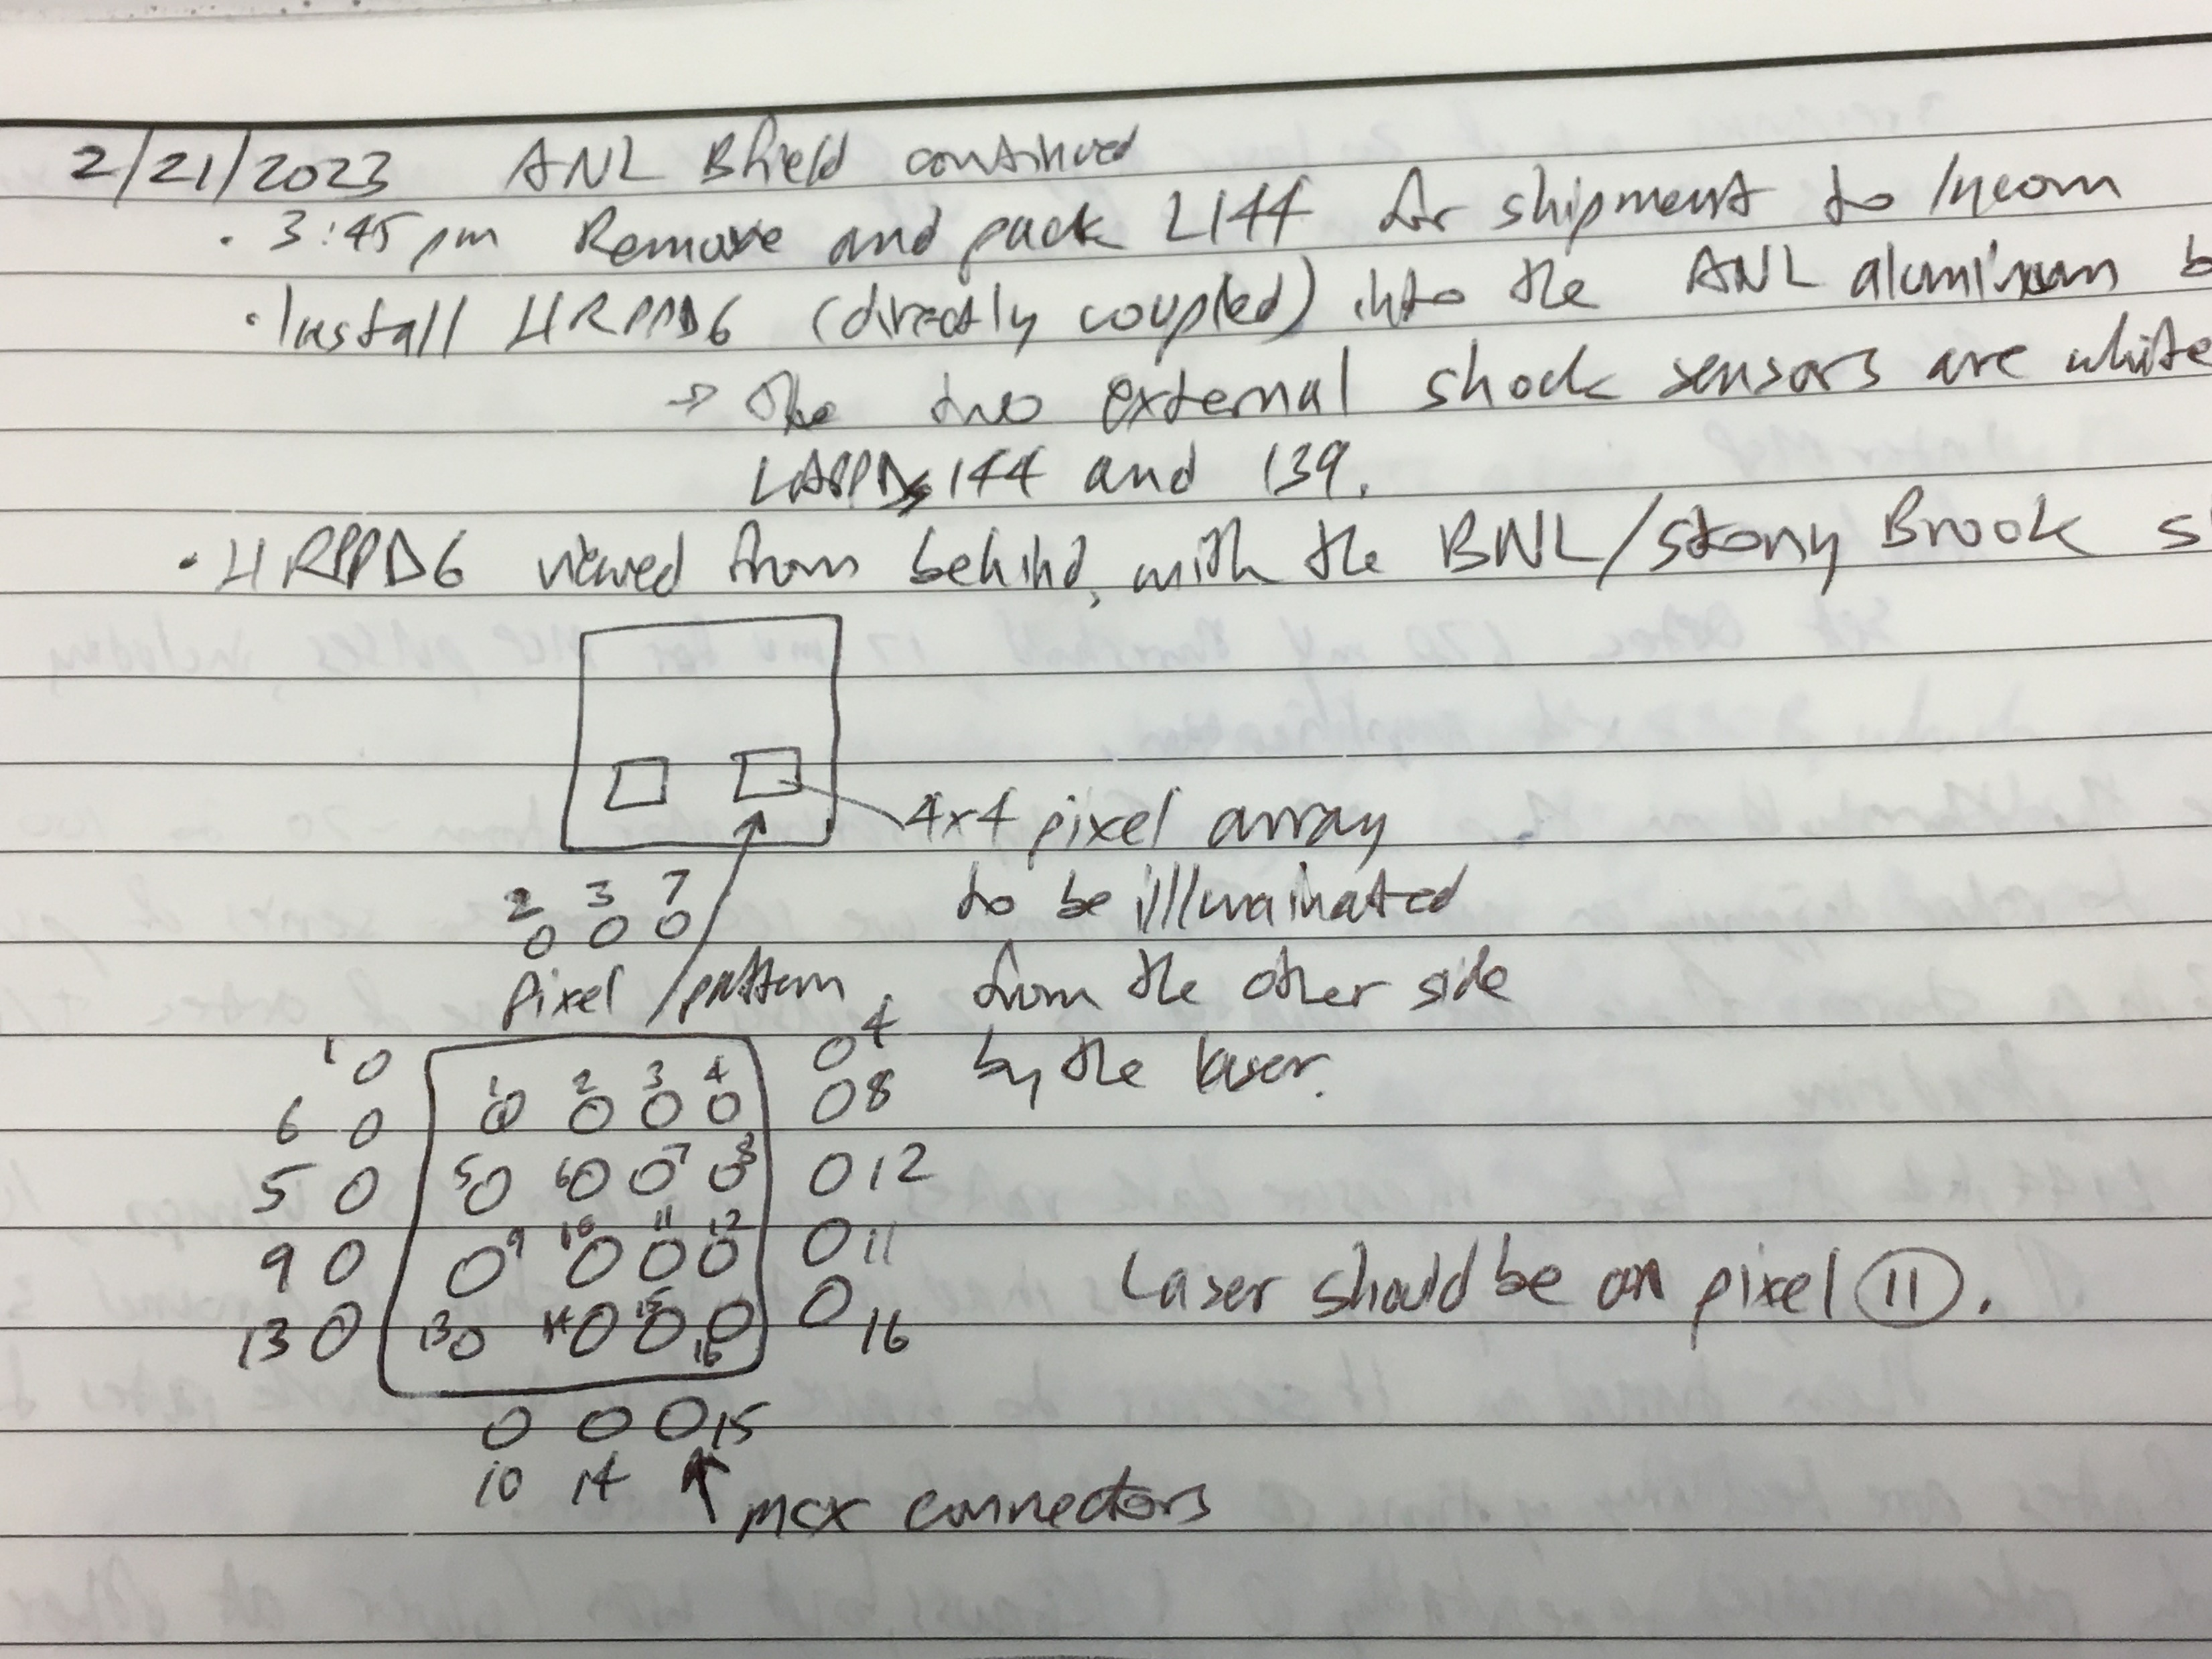 2/21/2023 ANL Bfield continued
· 3:45 pm Remove and pack L144 for shipment to Incom
· Install HRPPD6 (directly coupled) into the ANL aluminum b
→ The two external shock sensors are white
LAPPDs 144 and 139.
· HRPPD6 viewed from behind, with the BNL/Stony Brook s
4x4 pixel array
to be illuminated
from the other side
by the laser.
2 3 7
0 0 0
Pixel pattern
1 0 0 4
1 2 3 4
6 0 0 0 0 0 0 8
5 0 5 0 6 0 0 7 0 8 0 12
9 0 0 9 10 0 11 0 12 0 0 11
13 0 13 0 14 0 15 0 16 0 0 16
Laser should be on pixel 11.
0 0 0 15
10 14 ↑ mcx connectors